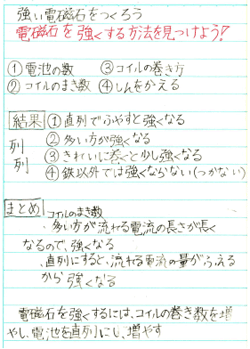 強い電磁石をつくろう
電磁石を強くする方法を見つけよう!
①電池の数 ③コイルの巻き方
②コイルのまき数 ④しんをかえる
結果 ①直列でふやすと強くなる
列 ②多い方が強くなる
列 ③きれいに巻くと少し強くなる
④鉄以外では強くならない(つかない)
まとめ コイルのまき数
・多い方が流れる電流の長さが長く
なるので、強くなる
・直列にすると、流れる電流の量がふえる
から強くなる
電磁石を強くするには、コイルの巻き数を増
やし、電池を直列にし、増やす